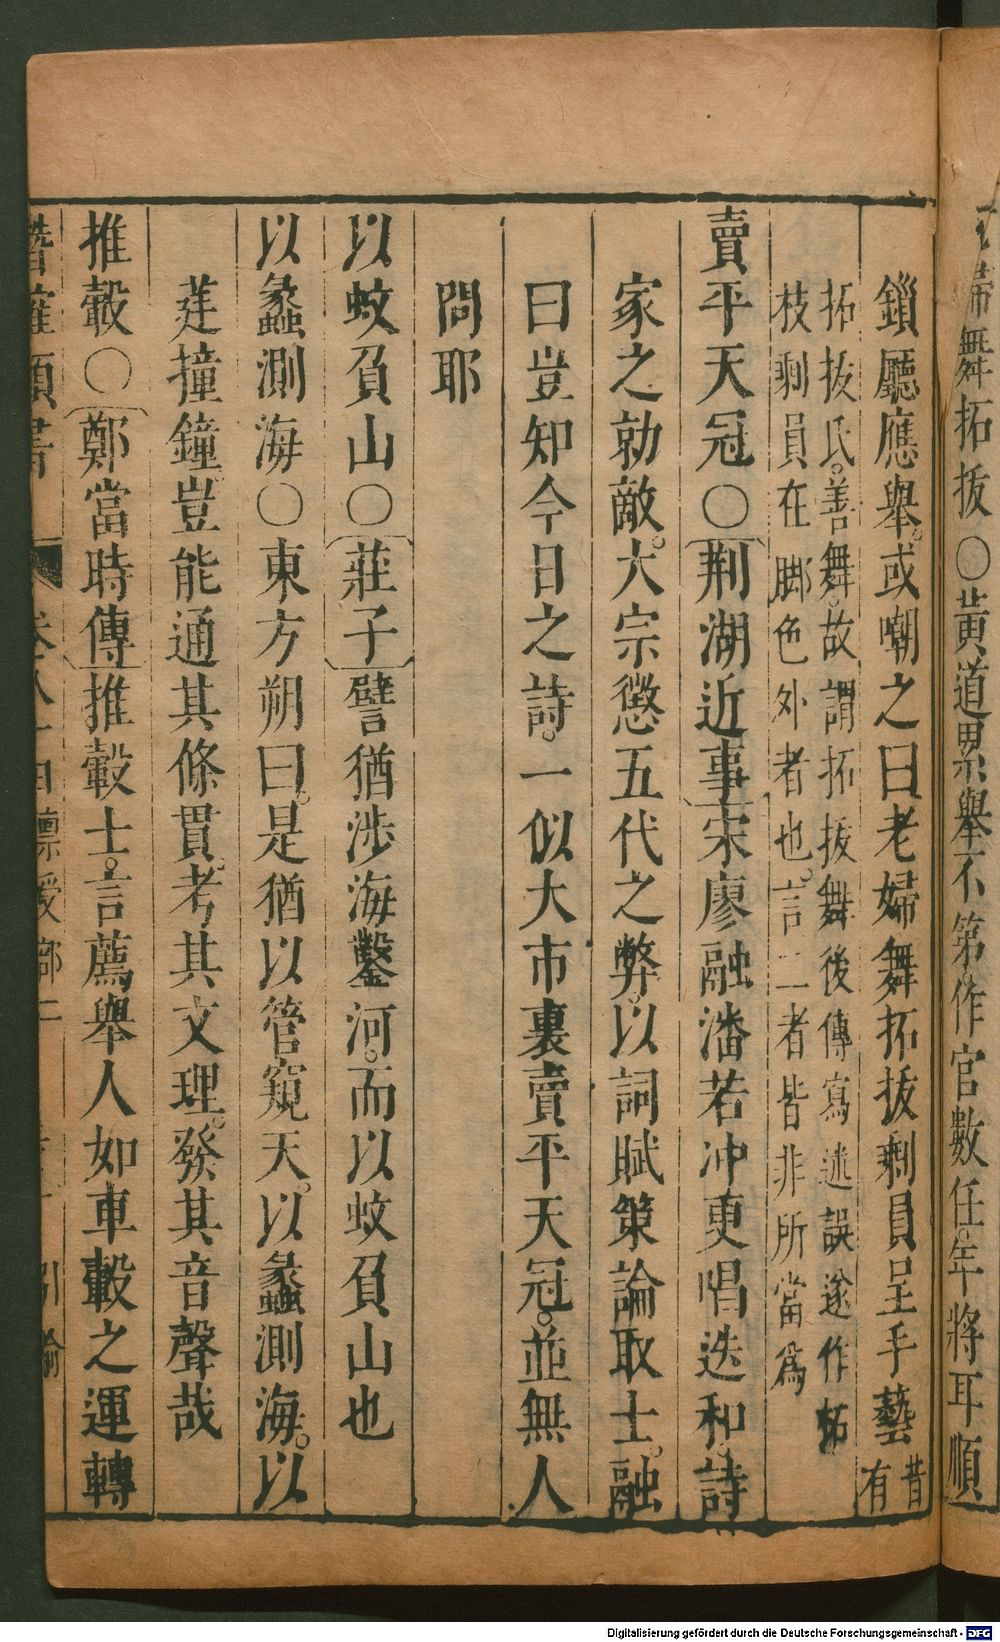 舞拓拔○黃道累舉不第。作官數任。年將耳順
鎖廳應舉。或嘲之曰老婦舞拓拔剩員呈手藝昔有
拓拔氏。善舞。故謂拓拔舞後傳寫述誤遂作柘
枝剩員在脚色外者也。言二者皆非所當爲
賣平天冠○荆湖近事宋廖融潘若冲更唱迭和。詩
家之勍敵。太宗懲五代之弊。以詞賦策論取士。融
曰豈知今日之詩。一似大市裏賣平天冠。並無人
問耶
以蚊負山○莊子譬猶涉海鑿河。而以蚊負山也
以蠡測海○東方朔曰。是猶以管窺天。以蠡測海。以
莛撞鐘。豈能通其條貫。考其文理。發其音聲哉
推轂○鄭當時傳推轂士。言薦舉人如車轂之運轉
潛確類書 卷八十 禀受部二 引喻
Digitalisierung gefördert durch die Deutsche Forschungsgemeinschaft - DFG